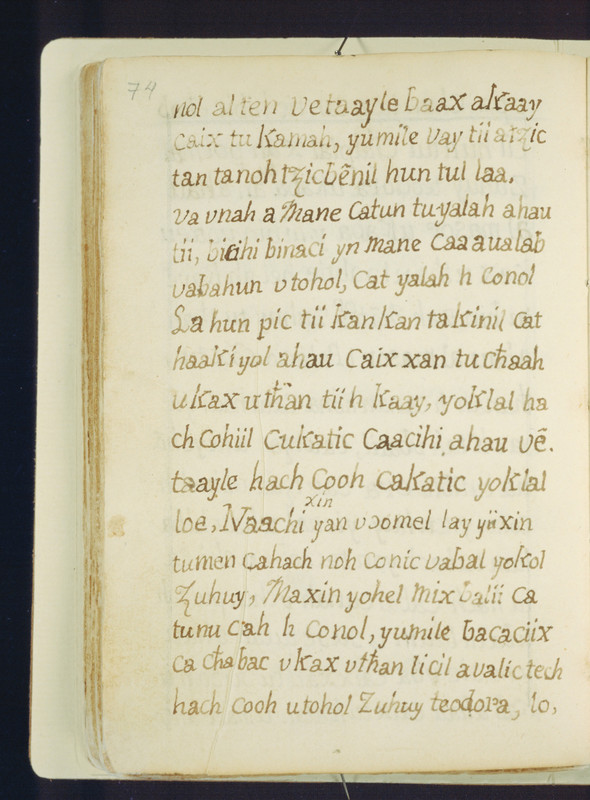 74
nol alten Vetaayle baax akaay
Caix tu Kamah, yumile Vay tii atzic
tan tanoh tzicbẽnil hun tul laa.
va vnah a Mane Catun tuyalah ahau
tii, bicihi binaci yn Mane Caaaualab
vabahun vtohol, Cat yalah h Conol
La hun pic tii KanKan takinil Cat
haaki yol ahau Caix xan tu chaah
uKax uthan tii h Kaay, yoklal ha
ch Cohiil Cukatic Caacihi ahau vẽ.
taayle hach Cooh Cakatic yoklal
xin
loe, Naachi yan vɔomel lay yiixin
tumen Cahach noh Conic vabal yokol
Zuhuy, Maxin yohel Mix balii Ca
tunu Cah h Conol, yumile bacaciix
Ca chabac vkax vthan licil avalic tech
hach Cooh utohol Zuhuy teodora, lo,